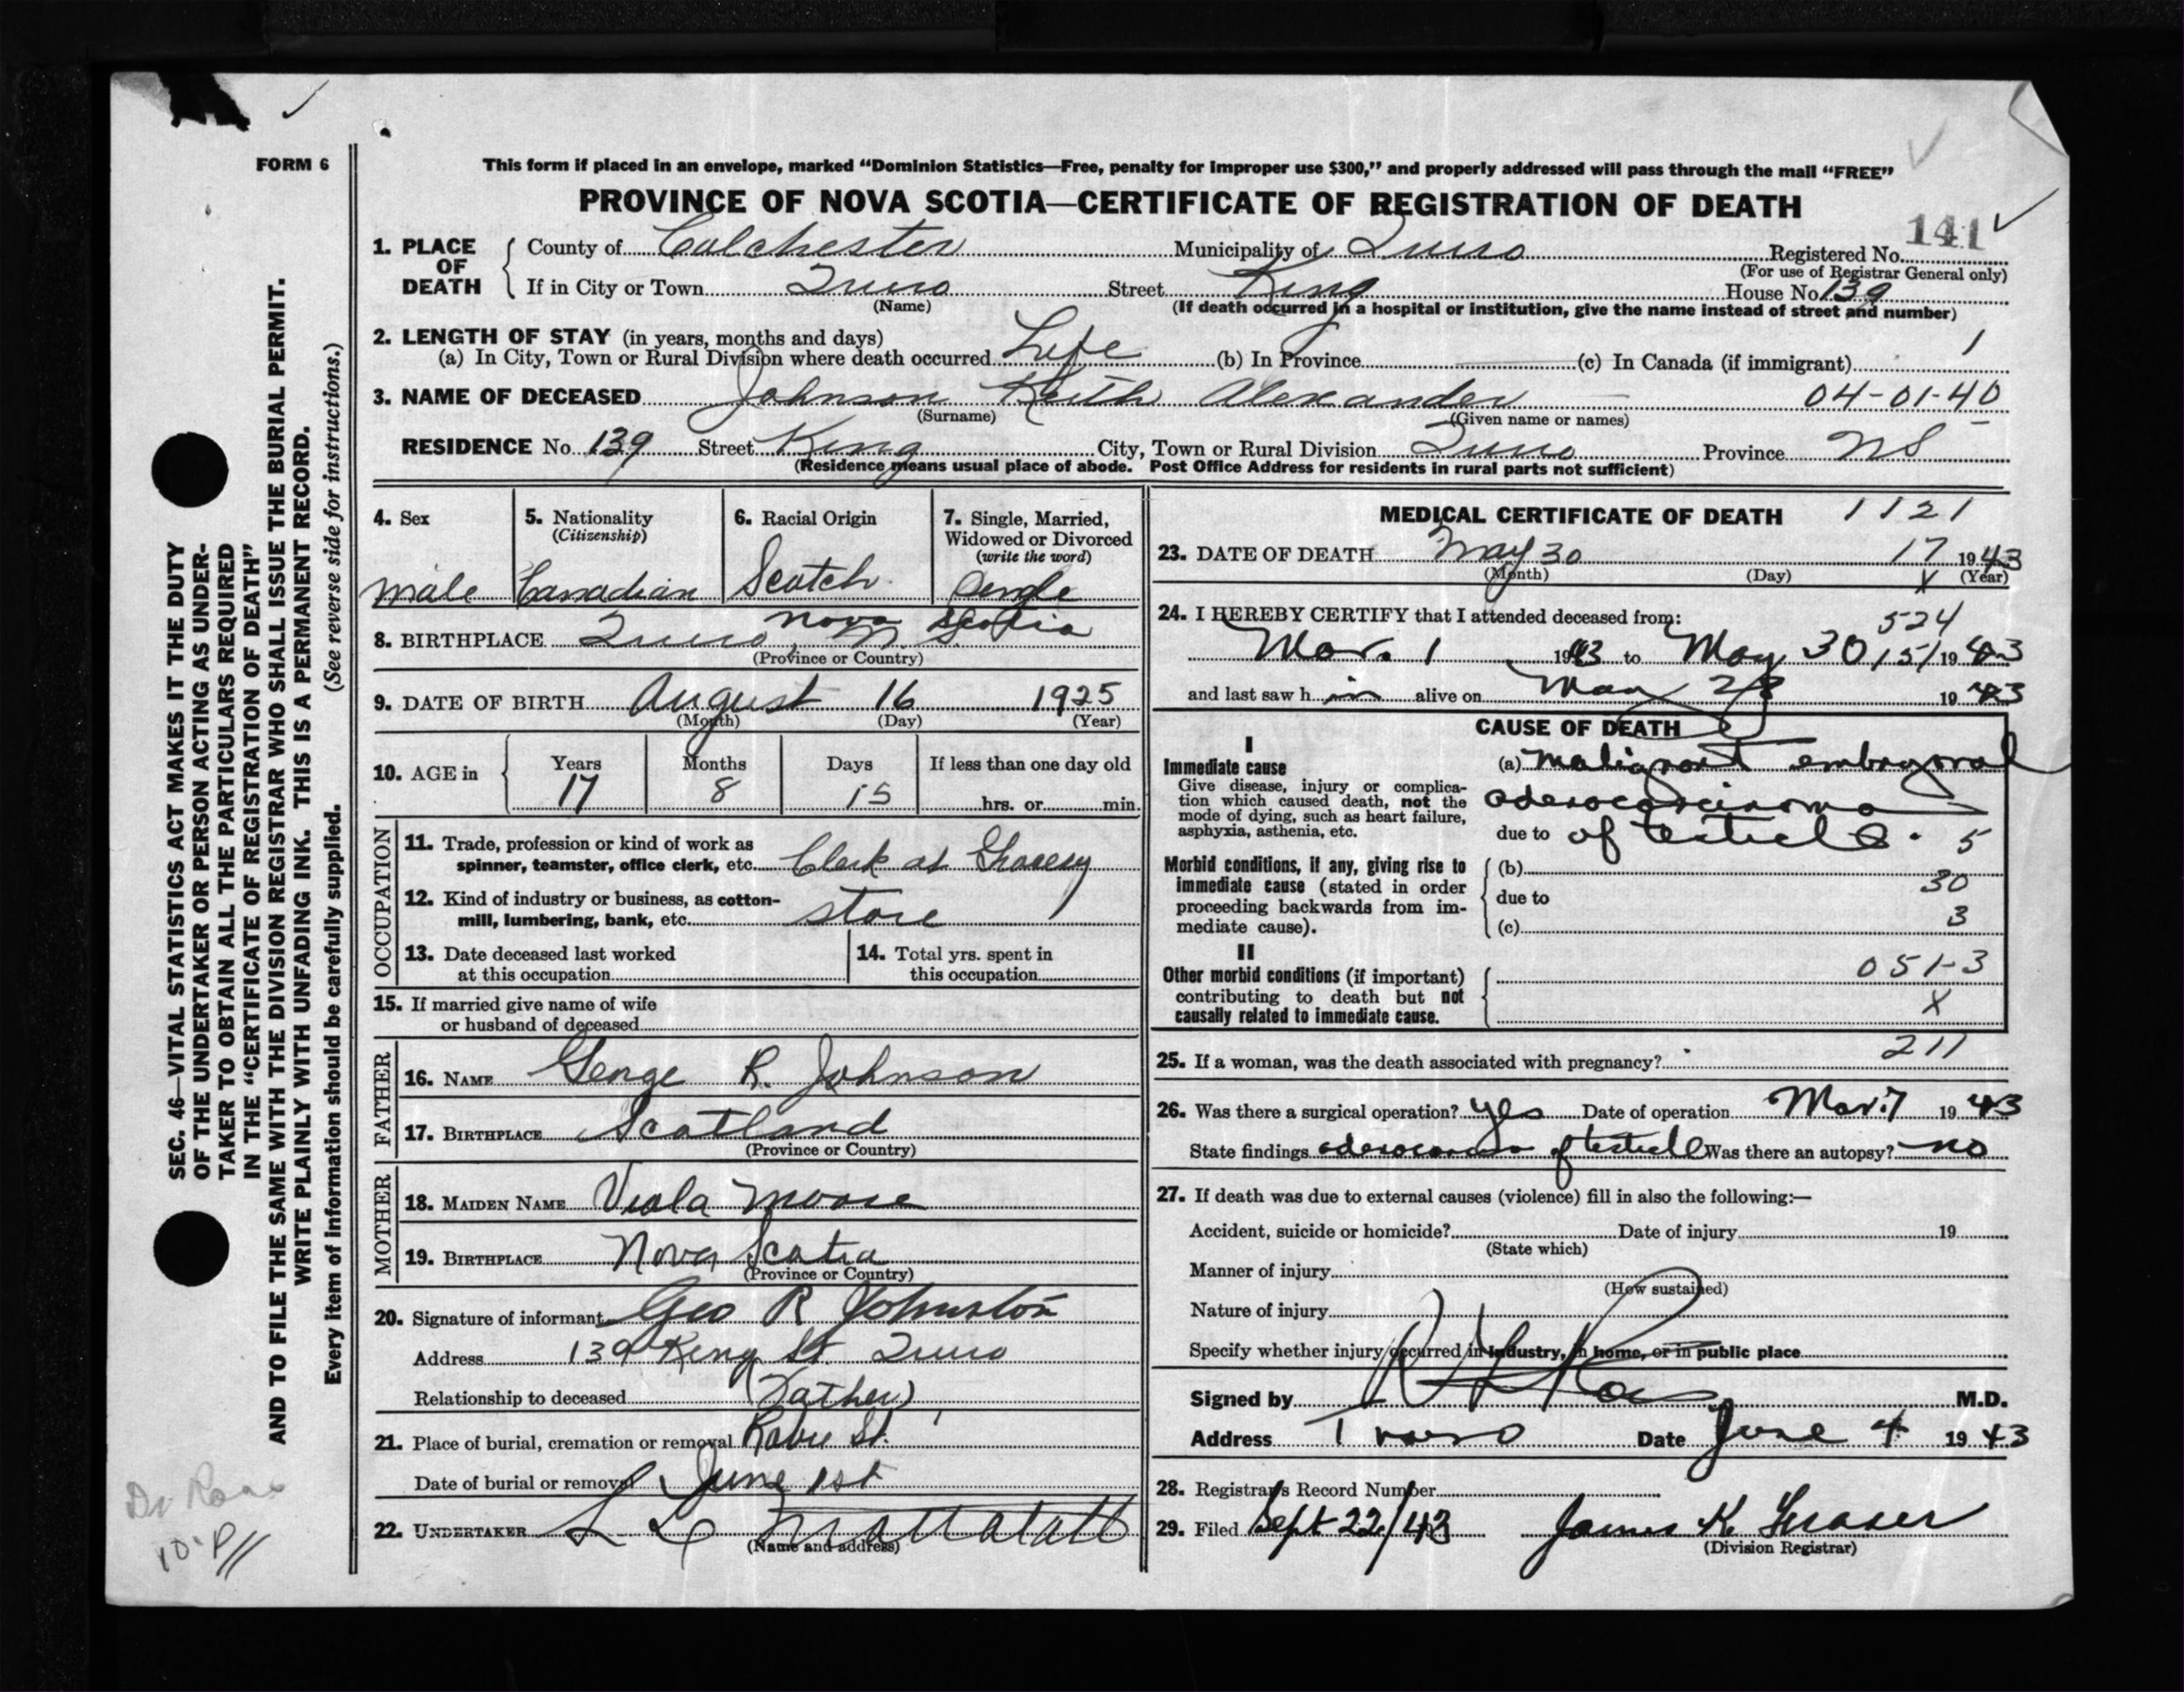 FORM 6
This form if placed in an envelope, marked “Dominion Statistics—Free, penalty for improper use $300,” and properly addressed will pass through the mail “FREE”
PROVINCE OF NOVA SCOTIA—CERTIFICATE OF REGISTRATION OF DEATH
141
1. PLACE OF DEATH County of Colchester Municipality of Truro Registered No.
(For use of Registrar General only)
If in City or Town Truro Street King House No. 139
(Name) (If death occurred in a hospital or institution, give the name instead of street and number)
2. LENGTH OF STAY (in years, months and days) 1
(a) In City, Town or Rural Division where death occurred Life (b) In Province (c) In Canada (if immigrant)
3. NAME OF DECEASED Johnson Keith Alexander 04-01-40
(Surname) (Given name or names)
RESIDENCE No. 139 Street King City, Town or Rural Division Truro Province NS
(Residence means usual place of abode. Post Office Address for residents in rural parts not sufficient)
4. Sex
male
5. Nationality
(Citizenship)
Canadian
6. Racial Origin
Scotch
7. Single, Married,
Widowed or Divorced
(write the word)
Single
Nova Scotia
8. BIRTHPLACE Truro, N.S.
(Province or Country)
9. DATE OF BIRTH August 16 1925
(Month) (Day) (Year)
10. AGE in Years Months Days If less than one day old
17 8 15 hrs. or min.
OCCUPATION
11. Trade, profession or kind of work as
spinner, teamster, office clerk, etc. Clerk at Grocery
12. Kind of industry or business, as cotton-
mill, lumbering, bank, etc. store
13. Date deceased last worked
at this occupation
14. Total yrs. spent in
this occupation
15. If married give name of wife
or husband of deceased
FATHER
16. NAME George R. Johnson
17. BIRTHPLACE Scotland
(Province or Country)
MOTHER
18. MAIDEN NAME Viola Moore
19. BIRTHPLACE Nova Scotia
(Province or Country)
20. Signature of informant Geo R Johnston
Address 139 King St. Truro
Relationship to deceased (Father)
21. Place of burial, cremation or removal Robie St.
Date of burial or removal June 1st
22. UNDERTAKER L
(Name and address)
MEDICAL CERTIFICATE OF DEATH 1121
23. DATE OF DEATH May 30 17 1943
(Month) (Day) (Year)
X
24. I HEREBY CERTIFY that I attended deceased from:
524
Mar. 1 1943 to May 30 151 1943
and last saw h im alive on May 28 1943
CAUSE OF DEATH
I
Immediate cause
Give disease, injury or complica-
tion which caused death, not the
mode of dying, such as heart failure,
asphyxia, asthenia, etc.
(a) malignant embryonal
adenocarcinoma
due to of testicle. 5
Morbid conditions, if any, giving rise to
immediate cause (stated in order
proceeding backwards from im-
mediate cause).
(b)
30
due to
3
(c)
II
Other morbid conditions (if important)
contributing to death but not
causally related to immediate cause.
051-3
X
211
25. If a woman, was the death associated with pregnancy?
26. Was there a surgical operation? yes Date of operation Mar. 7 1943
State findings adenocarcinoma of testicle Was there an autopsy? no
27. If death was due to external causes (violence) fill in also the following:—
Accident, suicide or homicide? Date of injury 19
(State which)
Manner of injury
(How sustained)
Nature of injury
Specify whether injury occurred in industry, in home, or in public place
Signed by M.D.
Address Truro Date June 4 1943
28. Registrar's Record Number
29. Filed Sept 22/43 James K. Fraser
(Division Registrar)
SEC. 46—VITAL STATISTICS ACT MAKES IT THE DUTY
OF THE UNDERTAKER OR PERSON ACTING AS UNDER-
TAKER TO OBTAIN ALL THE PARTICULARS REQUIRED
IN THE “CERTIFICATE OF REGISTRATION OF DEATH”
AND TO FILE THE SAME WITH THE DIVISION REGISTRAR WHO SHALL ISSUE THE BURIAL PERMIT.
WRITE PLAINLY WITH UNFADING INK. THIS IS A PERMANENT RECORD.
Every item of information should be carefully supplied. (See reverse side for instructions.)